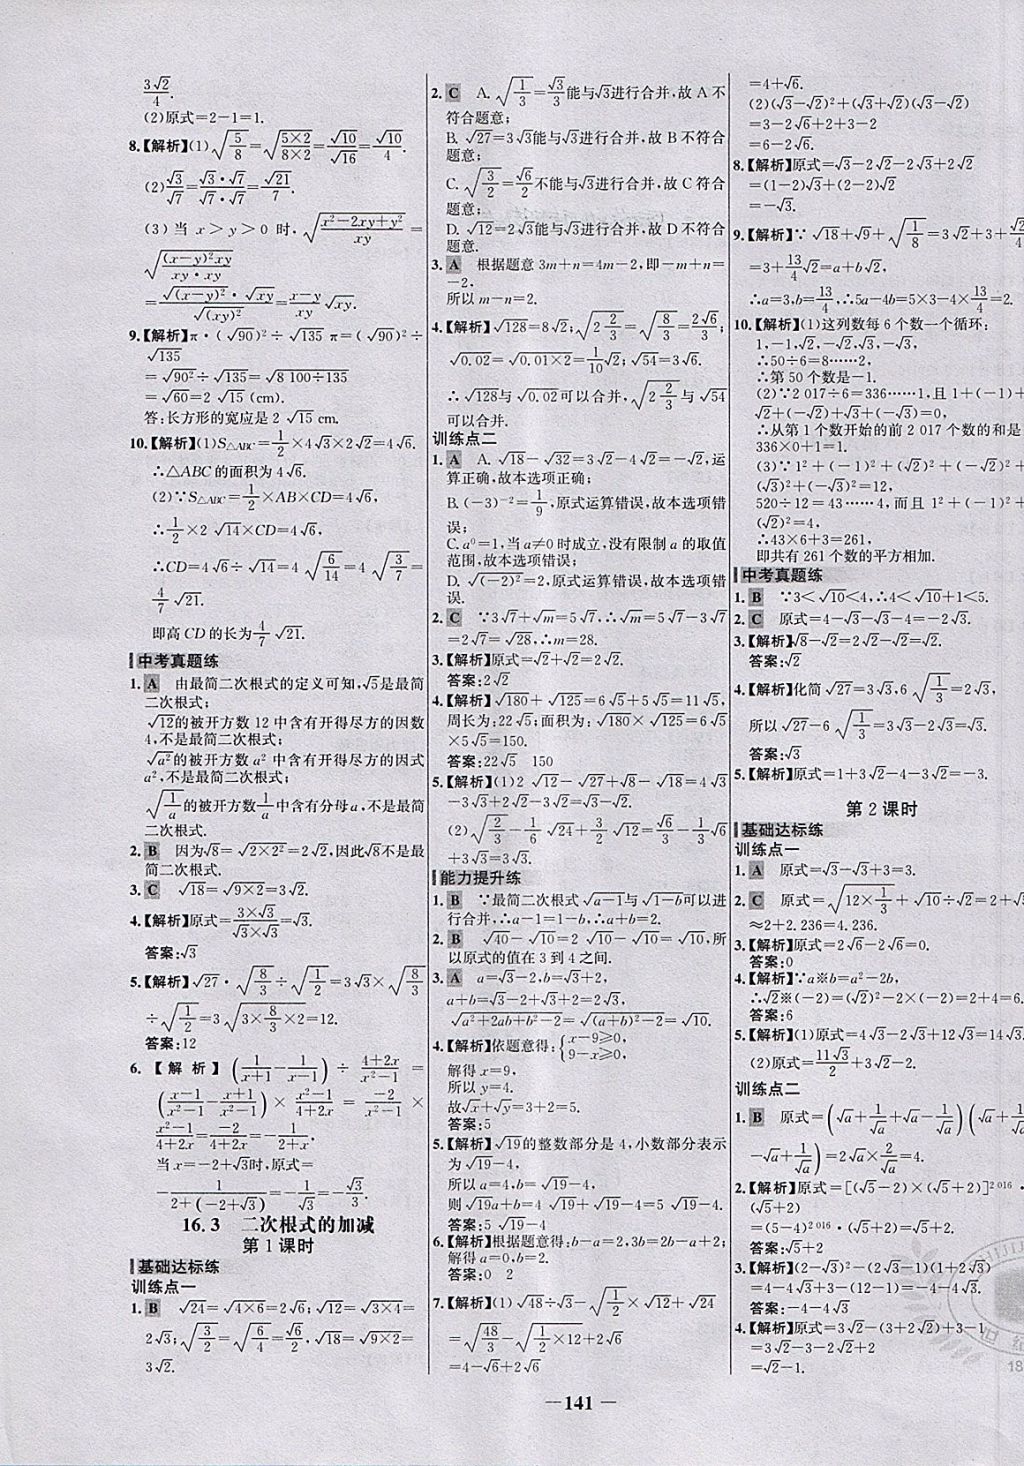 3√2/4.
(2)原式=2-1=1.
8.【解析】(1)√(5/8)=√((5×2)/(8×2))=√10/√16=√10/4.
(2)√3/√7=(√3·√7)/(√7·√7)=√21/7.
(3)当 x>y>0 时,√((x²-2xy+y²)/xy)=
√(((x-y)²xy)/(xy·xy))
=(√(x-y)²·√xy)/√(xy)²=((x-y)/xy)√xy.
9.【解析】π·(√90)²÷√135 π=(√90)²÷
√135
=√90²÷√135=√(8 100÷135)
=√60=2√15(cm).
答:长方形的宽应是2√15 cm.
10.【解析】(1)S△ABC=1/2×4√3×2√2=4√6.
∴△ABC的面积为4√6.
(2)∵S△ABC=1/2×AB×CD=4√6,
∴1/2×2√14×CD=4√6,
∴CD=4√6÷√14=4√(6/14)=4√(3/7)=
4/7√21.
即高CD的长为4/7√21.
中考真题练
1. A 由最简二次根式的定义可知,√5是最简
二次根式;
√12的被开方数12中含有开得尽方的因数
4,不是最简二次根式;
√a²的被开方数a²中含有开得尽方的因式
a²,不是最简二次根式;
√(1/a)的被开方数1/a中含有分母a,不是最简
二次根式.
2. B 因为√8=√(2×2²)=2√2,因此√8不是最
简二次根式.
3. C √18=√(9×2)=3√2.
4.【解析】原式=(3×√3)/(√3×√3)=√3.
答案:√3
5.【解析】√27·√(8/3)÷√(1/2)=3√3×√(8/3)
÷√(1/2)=3√(3×8/3×2)=12.
答案:12
6.【解析】(1/(x+1)-1/(x-1))÷(4+2x)/(x²-1)=
((x-1)/(x²-1)-(x+1)/(x²-1))×(x²-1)/(4+2x)=-2/(x²-1)×
(x²-1)/(4+2x)=-2/(4+2x)=-1/(2+x).
当x=-2+√3时,原式=
-1/(2+(-2+√3))=-1/√3=-√3/3.
16.3 二次根式的加减
第1课时
基础达标练
训练点一
1. B √24=√(4×6)=2√6;√12=√(3×4)=
2√3;√(3/2)=√(6/4)=√6/2;√18=√(9×2)=
3√2.
2. C A.√(1/3)=√3/3能与√3进行合并,故A不
符合题意;
B.√27=3√3能与√3进行合并,故B不符合
题意;
C.√(3/2)=√6/2不能与√3进行合并,故C符合
题意;
D.√12=2√3能与√3进行合并,故D不符合
题意.
3. A 根据题意3m+n=4m-2,即-m+n=
-2,
所以m-n=2.
4.【解析】√128=8√2;√(2 2/3)=√(8/3)=2√6/3;
√0.02=√(0.01×2)=√2/10;√54=3√6.
∴√128与√0.02可以合并,√(2 2/3)与√54
可以合并.
训练点二
1. A A.√18-√32=3√2-4√2=-√2,运
算正确,故本选项正确;
B.(-3)⁻²=1/9,原式运算错误,故本选项错
误;
C.a⁰=1,当a≠0时成立,没有限制a的取值
范围,故本选项错误;
D.√(-2)²=2,原式运算错误,故本选项错
误.
2. C ∵3√7+√m=5√7,∴√m=5√7-3√7
=2√7=√28,∴m=28.
3.【解析】原式=√2+√2=2√2.
答案:2√2
4.【解析】√180+√125=6√5+5√5=11√5,
周长为:22√5;面积为:√180×√125=6√5
×5√5=150.
答案:22√5 150
5.【解析】(1)2√12-√27+√8-√18=4√3
-3√3+2√2-3√2=√3-√2.
(2)√(2/3)-1/6√24+3/2√12=√6/3-1/3√6
+3√3=3√3.
能力提升练
1. B ∵最简二次根式√(a-1)与√(1-b)可以进
行合并,∴a-1=1-b,∴a+b=2.
2. B √40-√10=2√10-√10=√10,所
以原式的值在3到4之间.
3. A a=√3-2,b=√3+2,
a+b=√3-2+√3+2=2√3,
√(a²+2ab+b²-2)=√((a+b)²-2)=√10.
4.【解析】依题意得:{x-9≥0,
9-x≥0,
解得x=9,
所以y=4.
故√x+√y=3+2=5.
答案:5
5.【解析】√19的整数部分是4,小数部分表示
为√19-4,
所以a=4,b=√19-4,
则√19a+4b=4√19+4√19-4=5√19-4.
答案:5√19-4
6.【解析】根据题意得:b-a=2,3b=2b-a+2;
解得a=0,b=2.
答案:0 2
7.【解析】(1)√48÷√3-√(1/2)×√12+√24
=√(48/3)-√(1/2×12)+2√6
=4-√6+2√6
=4+√6.
(2)(√3-√2)²+(√3+√2)(√3-√2)
=3-2√6+2+3-2
=6-2√6.
8.【解析】原式=√3-2√2-2√3+2√2
=(1-2)√3+(2-2)√2
=-√3.
9.【解析】∵√18+√9+√(1/8)=3√2+3+
=3+13/4√2=a+b√2,
∴a=3,b=13/4,∴5a-4b=5×3-4×13/4=2.
10.【解析】(1)这列数每6个数一个循环:
1,-1,√2,-√2,√3,-√3.
∴50÷6=8……2,
∴第50个数是-1.
(2)∵2 017÷6=336……1,且1+(-1)+
√2+(-√2)+√3+(-√3)=0,
∴从第1个数开始的前2 017个数的和是
336×0+1=1.
(3)∵1²+(-1)²+(√2)²+(-√2)²+
(√3)²+(-√3)²=12,
520÷12=43……4,而且1²+(-1)²+
(√2)²=4,
∴43×6+3=261,
即共有261个数的平方相加.
中考真题练
1. B ∵3<√10<4,∴4<√10+1<5.
2. C 原式=4-√3-√3-4=-2√3.
3.【解析】√8-√2=2√2-√2=√2.
答案:√2
4.【解析】化简√27=3√3,6√(1/3)=2√3,
所以√27-6√(1/3)=3√3-2√3=√3.
答案:√3
5.【解析】原式=1+3√2-4-3√2=-3.
第2课时
基础达标练
训练点一
1. A 原式=√3-√3+3=3.
2. C 原式=√(12×1/3)+√10÷√2=2+√5
≈2+2.236=4.236.
3.【解析】原式=2√6-2√6=0.
答案:0
4.【解析】∵a※b=a²-2b,
∴√2※(-2)=(√2)²-2×(-2)=2+4=6.
答案:6
5.【解析】(1)原式=4√3-2√3+12√3=14√3.
(2)原式=11√3/3+3√2-2.
训练点二
1. B 原式=(√a+1/√a+√a-1/√a)(√a+1/√a
-√a+1/√a)=2√a×2/√a=4.
2.【解析】原式=[(√5-2)×(√5+2)]²⁰¹⁶·
(√5+2)
=(5-4)²⁰¹⁶·(√5+2)=√5+2.
答案:√5+2
3.【解析】(2-√3)²-(2√3-1)(1+2√3)
=4-4√3+3-(12-1)=-4-4√3.
答案:-4-4√3
4.【解析】原式=3√2-(3+2√2)+3-1
=3√2-3-2√2+2
=√2-1.
— 141 —